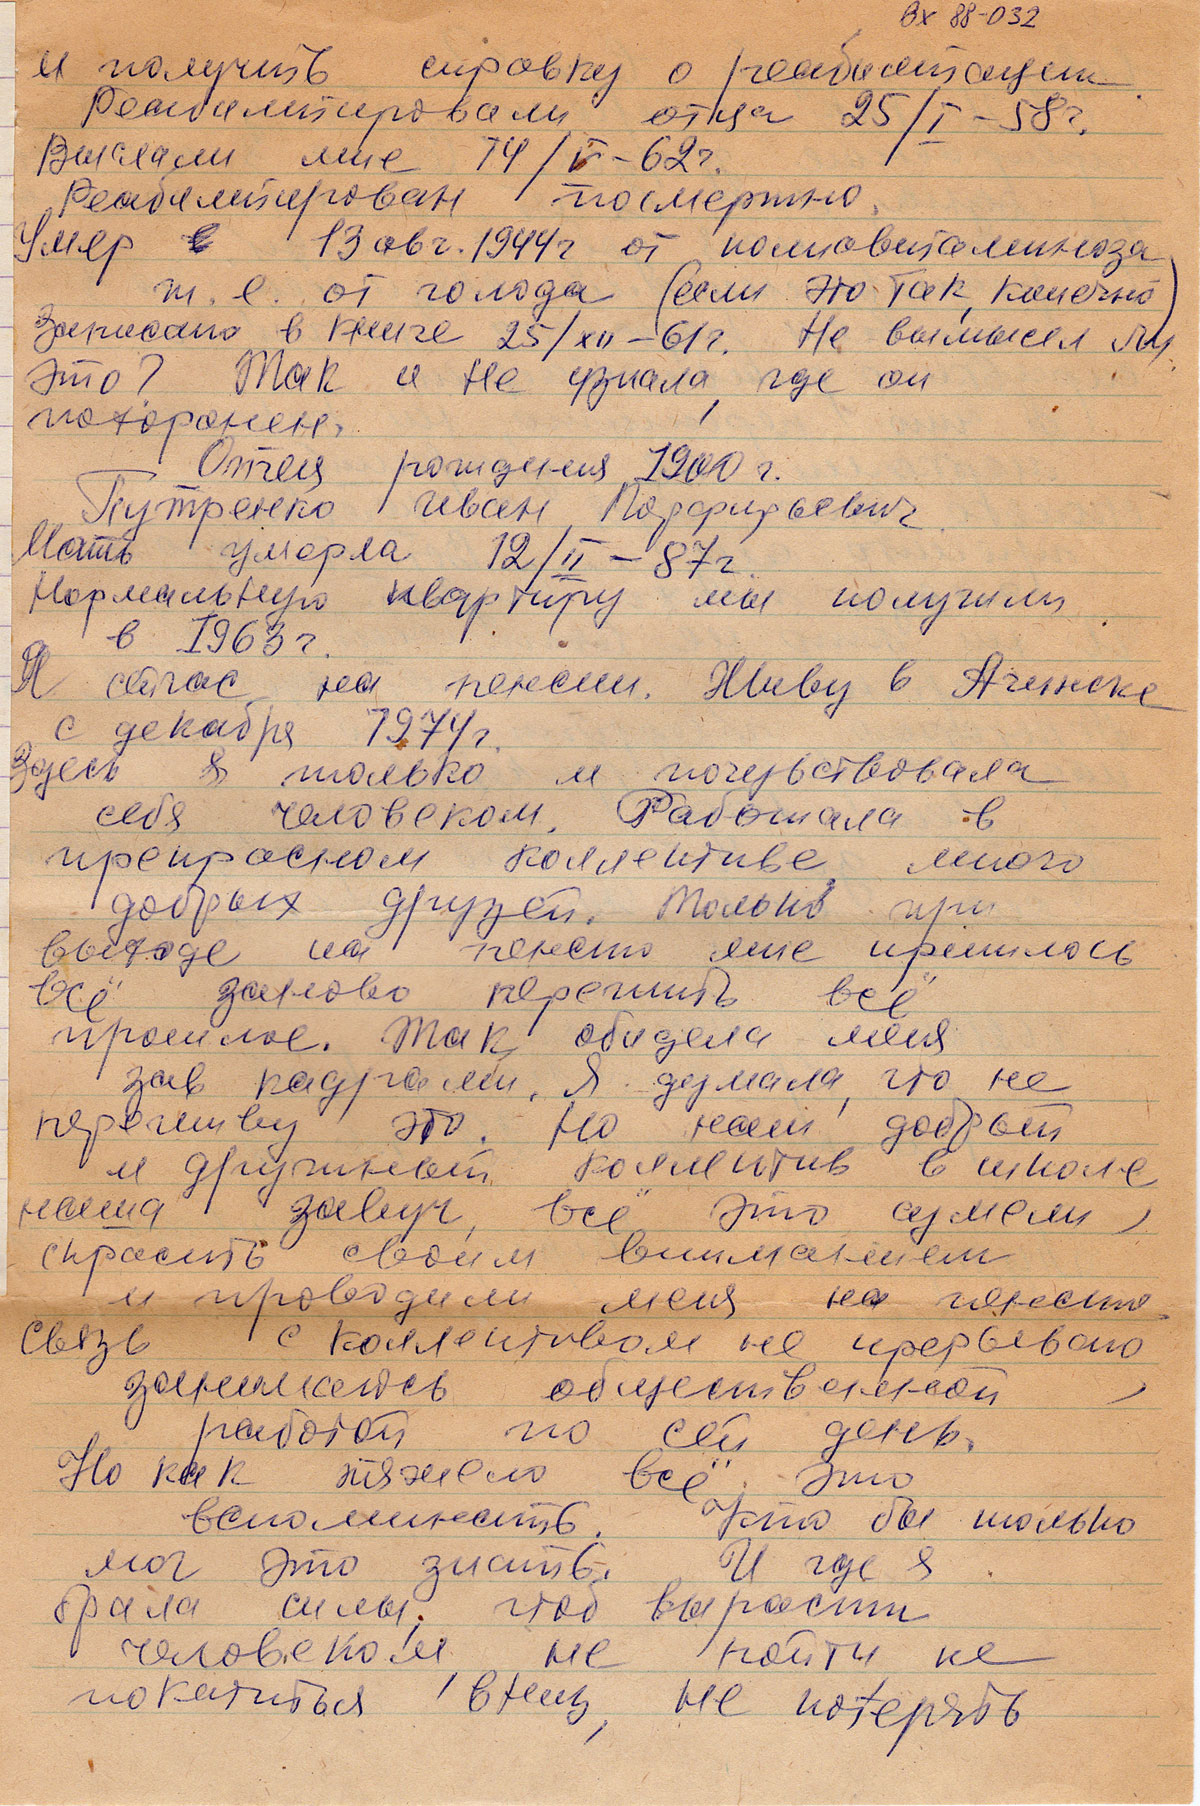 Вх 88-032
и получить справку о реабилитации.
Реабилитировали отца 25/I-58г.
Выслали мне 14/V-62г.
Реабилитирован посмертно.
Умер 13 авг. 1944г от полиавитаминоза
т. е. от голода (если это так, конечно)
Записано в книге 25/XII-61г. Не вымысел ли
это? Так и не узнала, где он
похоронен.
Отец рождения 1900г.
Путренко Иван Порфирьевич.
Мать умерла 12/II-87г.
Нормальную квартиру мы получили
в 1963г.
Я сейчас на пенсии. Живу в Ачинске
с декабря 1974г.
Здесь я только и почувствовала
себя человеком. Работала в
прекрасном коллективе, много
добрых друзей. Только при
выходе на пенсию мне пришлось
всё заново пережить всё
прошлое. Так обидела меня
зав кадрами. Я думала, что не
переживу это. Но наш добрый
и дружный коллектив в школе
наша завуч, всё это сумели
скрасить своим вниманием
и проводили меня на пенсию.
Связь с коллективом не прерываю
занимаюсь общественной
работой по сей день.
Но как тяжело всё это
вспоминать. Кто бы только
мог это знать. И где я
брала силы, чтоб вырасти
человеком не пойти не
покатиться вниз, не потерять